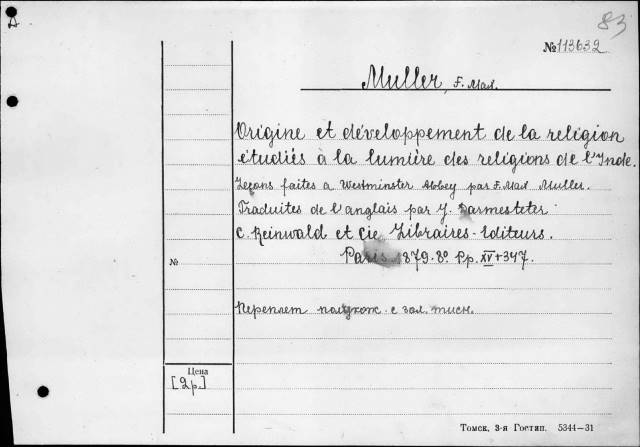 83
A
№113632
Muller, F. Max.
Origine et développement de la religion
étudiés à la lumière des religions de l'Inde.
Leçons faites a Westminster Abbey par F. Max Muller.
Traduites de l'anglais par J. Darmesteter
C. Reinwald et Cie Libraires-Editeurs.
Paris 1879. 8º. Pp. XV+347.
№
Переплет полукож. с зол. тисн.
Цена
[2р.]
Томск, 3-я Гостип. 5344—31